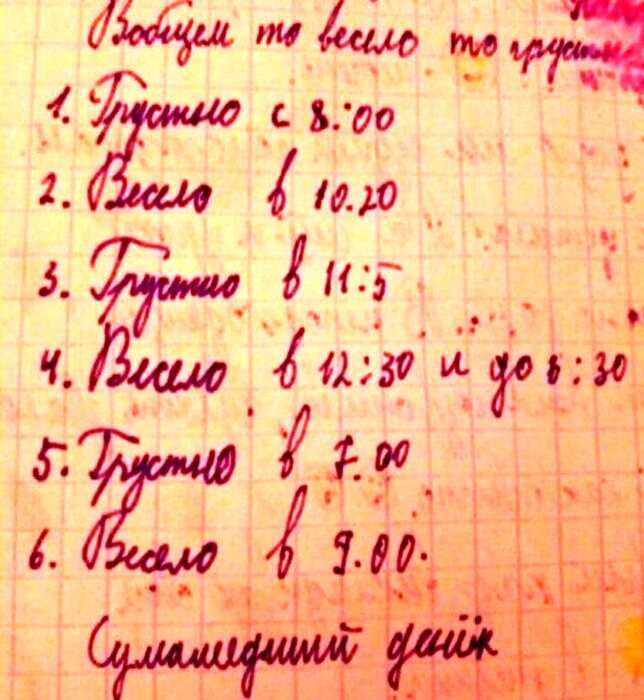 Вобщем то весело то грустно
1. Грустно с 8:00
2. Весело в 10.20
3. Грустно в 11:5
4. Весело в 12:30 и до 6:30
5. Грустно в 7.00
6. Весело в 9.00.
Сумашедший денёк